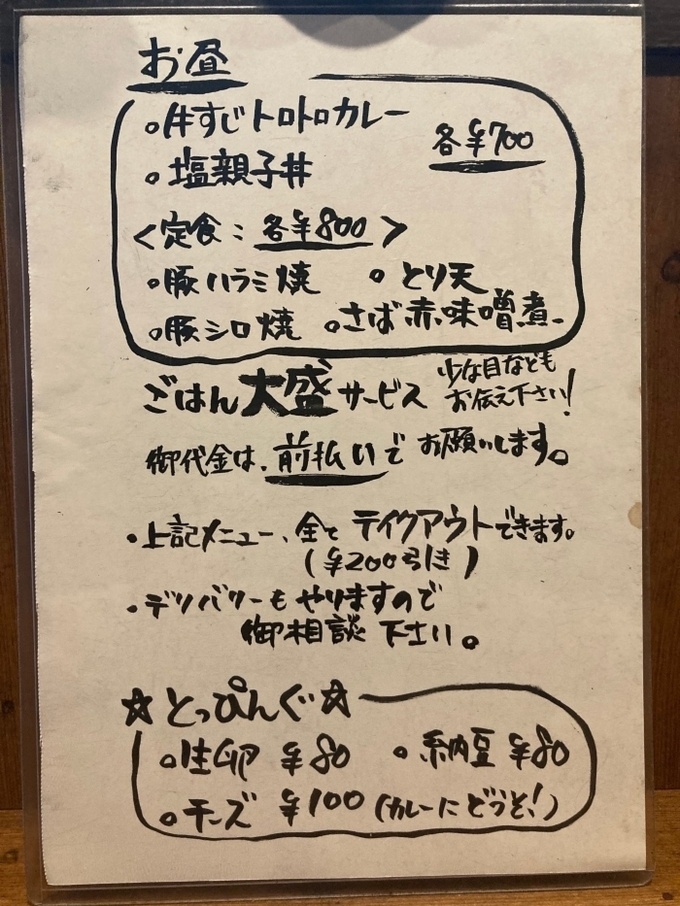 お昼
○牛すじトロトロカレー
各¥700
○塩親子丼
<定食：各¥800>
○豚ハラミ焼 ○とり天
○豚シロ焼 ○さば赤味噌煮
ごはん大盛サービス 少な目なども
お伝え下さい!
御代金は、前払いでお願いします。
・上記メニュー、全てテイクアウトできます。
(¥200引き)
・デリバリーもやりますので
御相談下さい。
☆とっぴんぐ☆
○生卵 ¥80 ○納豆 ¥80
○チーズ ¥100 (カレーにどうぞ!)